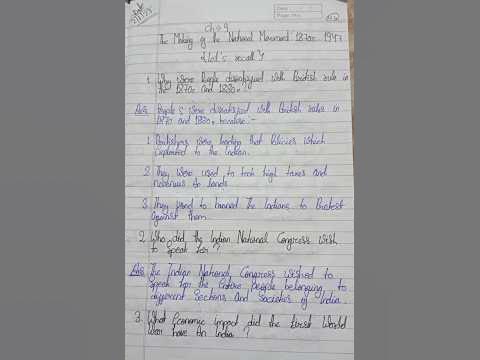 Ch → 9
The Making of the National Movement 1870s 1947
Let's recall
1. Why were People dissatisfied with British rule in the 1870s and 1880s.
Ans. People's were dissatisfied with British rules in
1870 and 1880, because :-
1. Britishers were leading that Policies which
exploited to the Indian.
2. They were used to took high taxes and
revenues on lands
3. They used to banned The Indians to Protest
against them.
2. Who did the Indian National Congress wish
to speak for ?
Ans The Indian National Congress wished to
speak for the Entire people belonging to
different Sections and Societies of India.
3. What Economic impact did the First World
War have on India ?